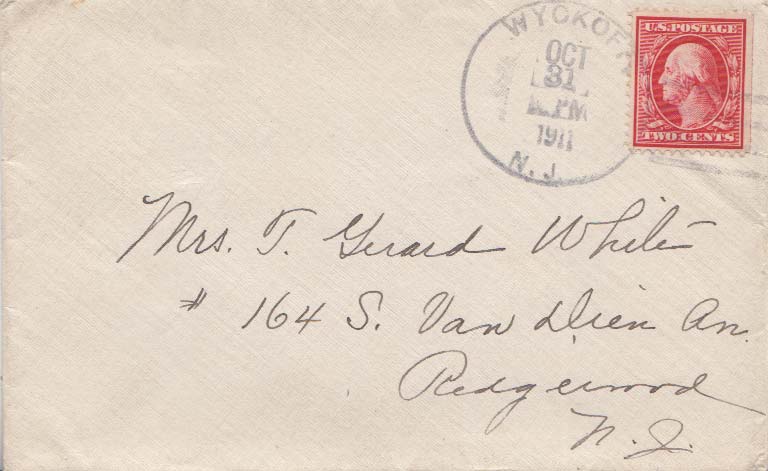 WYCKOFF
OCT
31
PM
1911
N. J.
U.S. POSTAGE
TWO CENTS
Mrs. T. Gerard White
# 164 S. Van Dien Av.
Ridgewood
N. J.